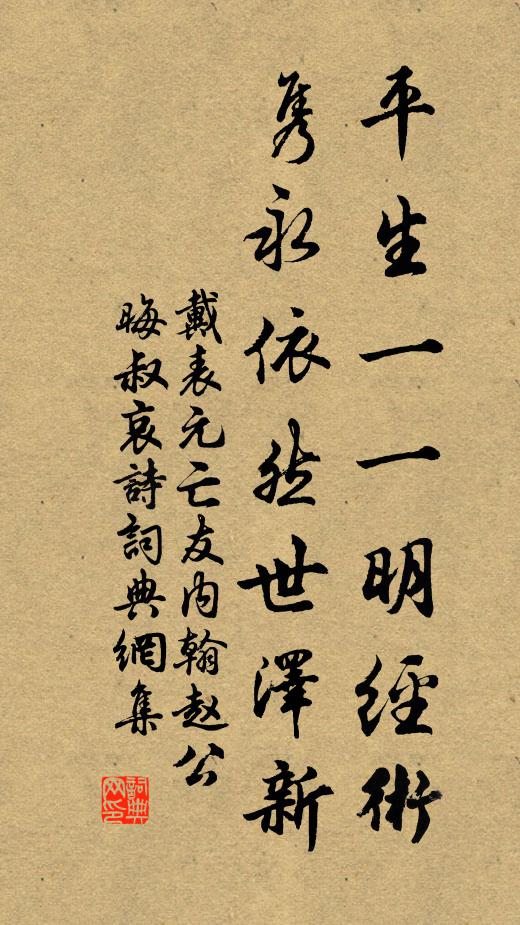 平生一一明經術
隽永依然世澤新
戴表元亡友内翰赵公
晦叔哀詩詞典網集
詞典网印